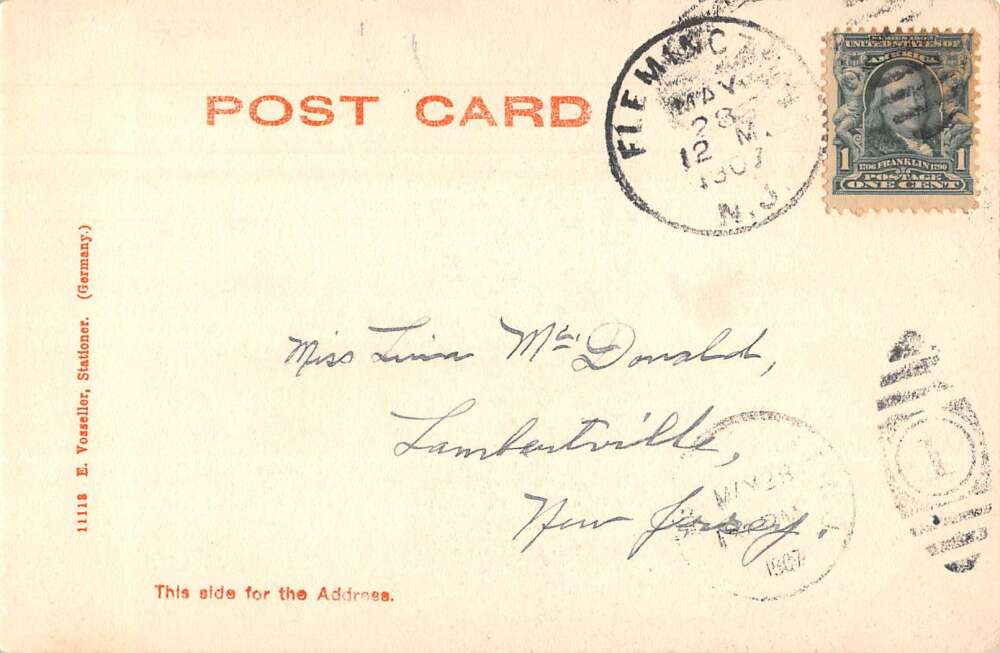 POST CARD
FLEMINGTON
MAY
28
12 M.
1907
N.J.
SERIES 1902
UNITED STATES OF
AMERICA
1 1706 FRANKLIN 1790 1
POSTAGE
ONE CENT
11118 E. Vosseller, Stationer. (Germany.)
Miss Linn McDonald,
Lambertville,
New Jersey.
MAY 28
1907
This side for the Address.